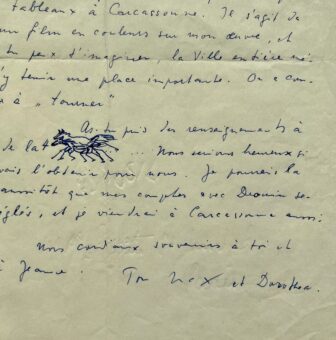 tableaux à Carcassonne. Il s'agit d'
un film en couleurs sur mon œuvre, et
tu peux t'imaginer, la Ville entière
'y tenir une place importante. On a com-
à "tourner"
As-tu pris des renseignements à
de la ... Nous serions heureux si
vais l'obtenir pour nous. Je pourrais la
aussitôt que mes comptes avec se-
églés, et je viendrai à Carcassonne aussi
Nos cordiaux souvenirs à toi et
à Jeanne. Ton Max et Dorothea.